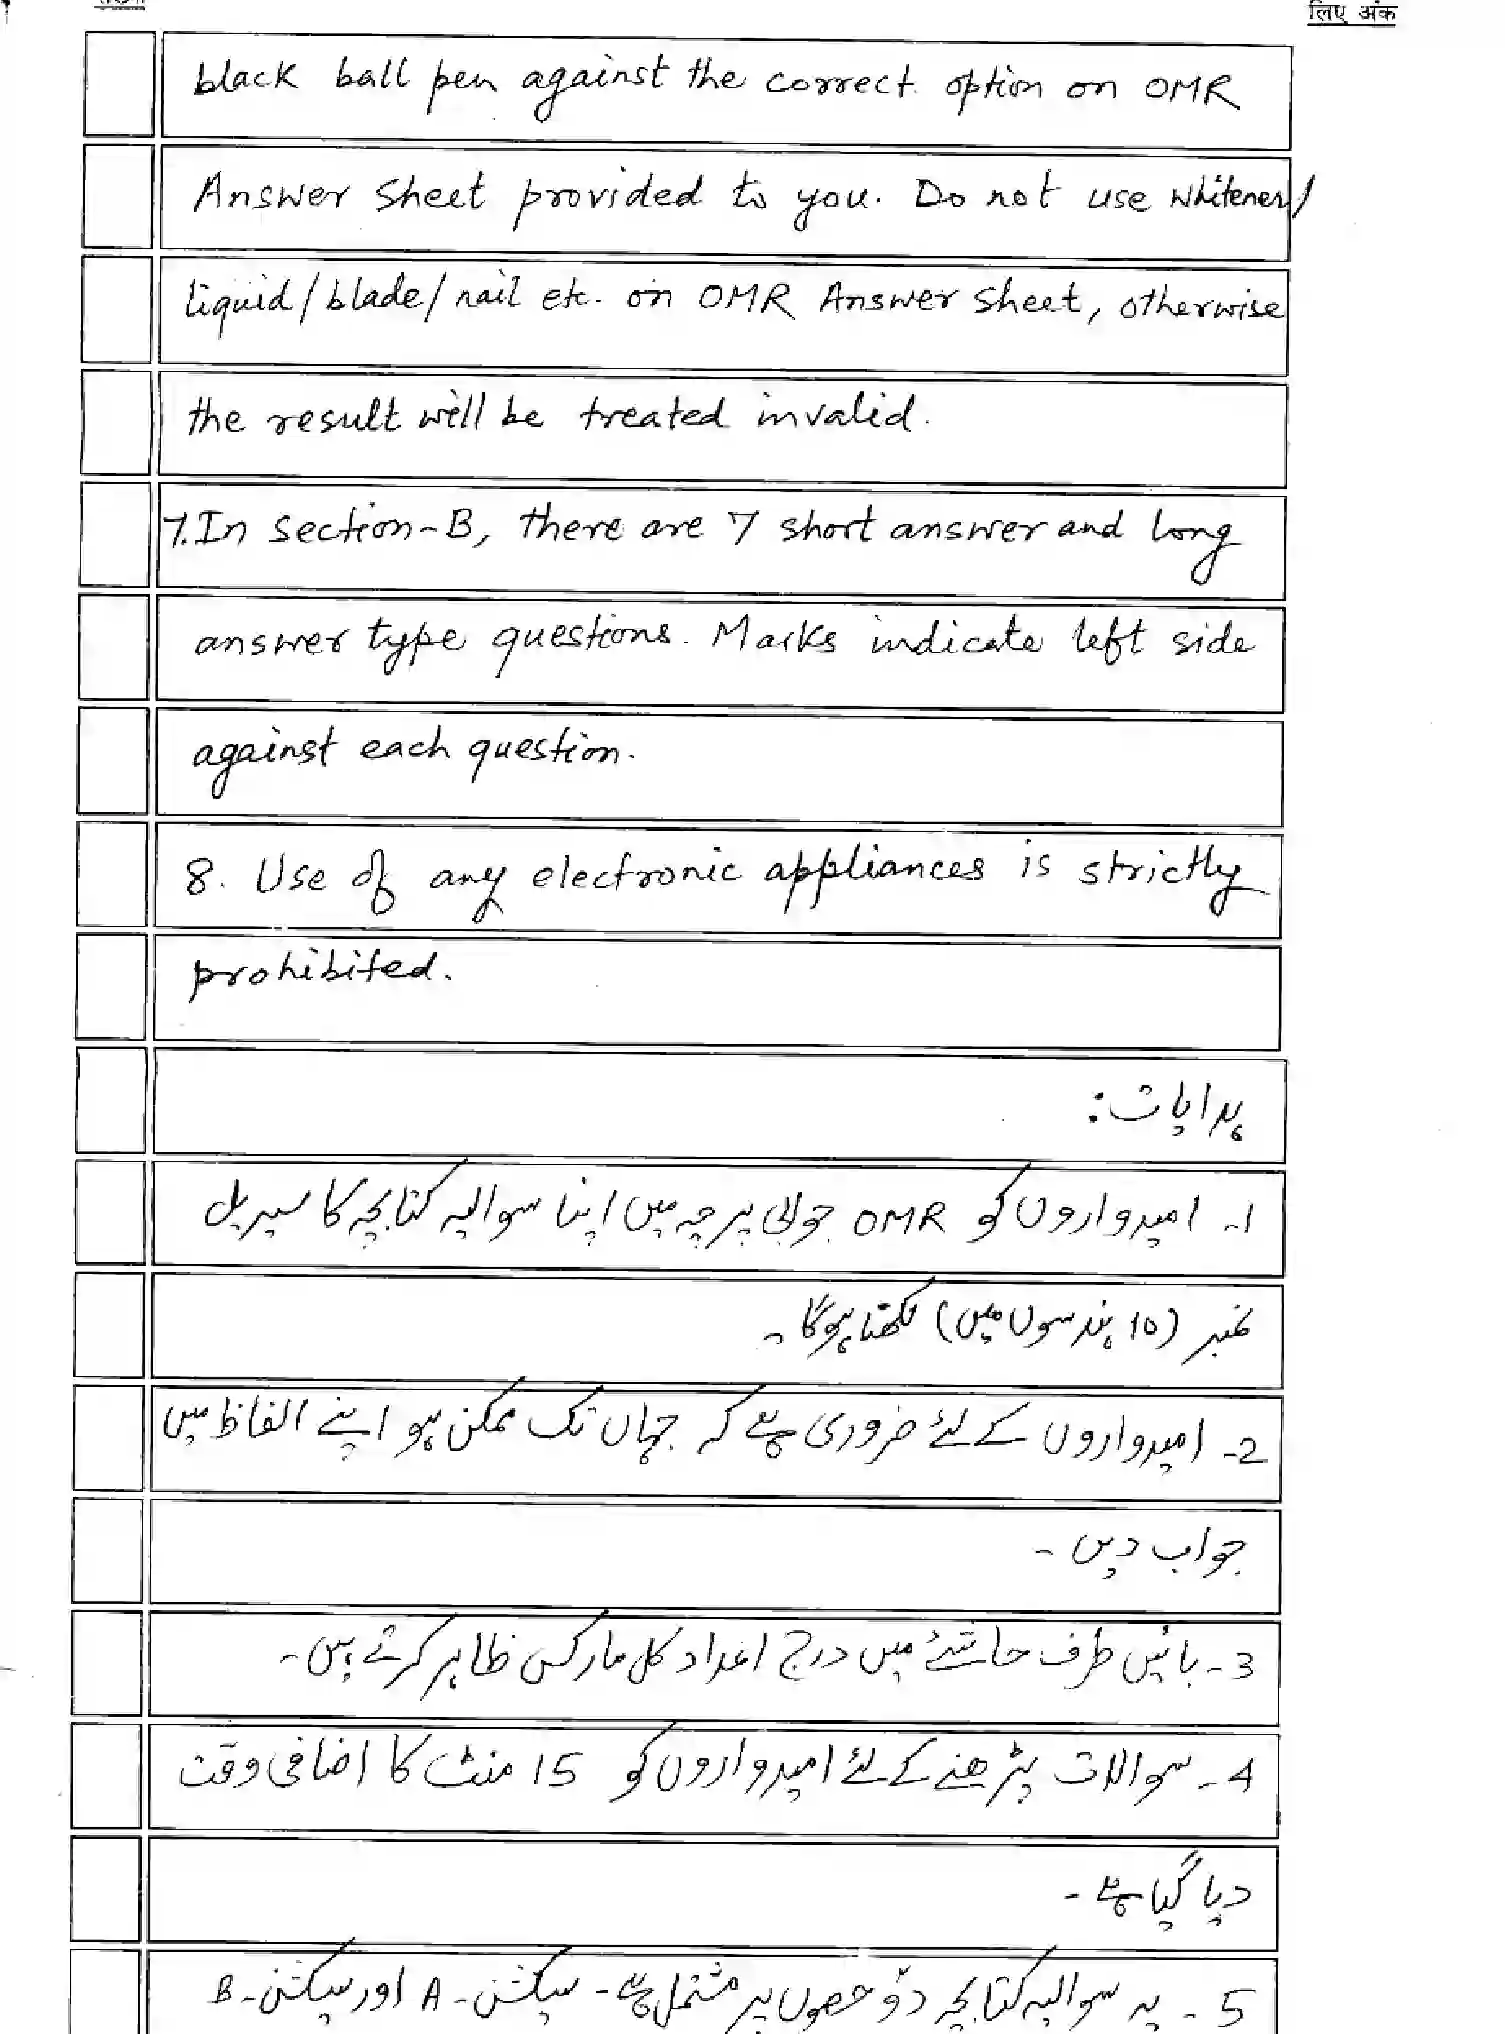 लिए अंक
black ball pen against the correct option on OMR
Answer sheet provided to you. Do not use whitener/
liquid/blade/nail etc. on OMR Answer sheet, otherwise
the result will be treated invalid.
7. In section-B, there are 7 short answer and long
answer type questions. Marks indicate left side
against each question.
8. Use of any electronic appliances is strictly
prohibited.
ہدایات:
1- امیدواروں کو OMR جوابی پرچہ میں اپنا سوالیہ کتابچہ کا سیریل
نمبر (10 ہندسوں میں) لکھنا ہوگا۔
2- امیدواروں کے لئے ضروری ہے کہ جہاں تک ممکن ہو اپنے الفاظ میں
جواب دیں۔
3- بائیں طرف حاشئے میں درج اعداد کل مارکس ظاہر کرتے ہیں۔
4- سوالات پڑھنے کے لئے امیدواروں کو 15 منٹ کا اضافی وقت
دیا گیا ہے۔
5- یہ سوالیہ کتابچہ دو حصوں پر مشتمل ہے۔ سیکشن-A اور سیکشن-B